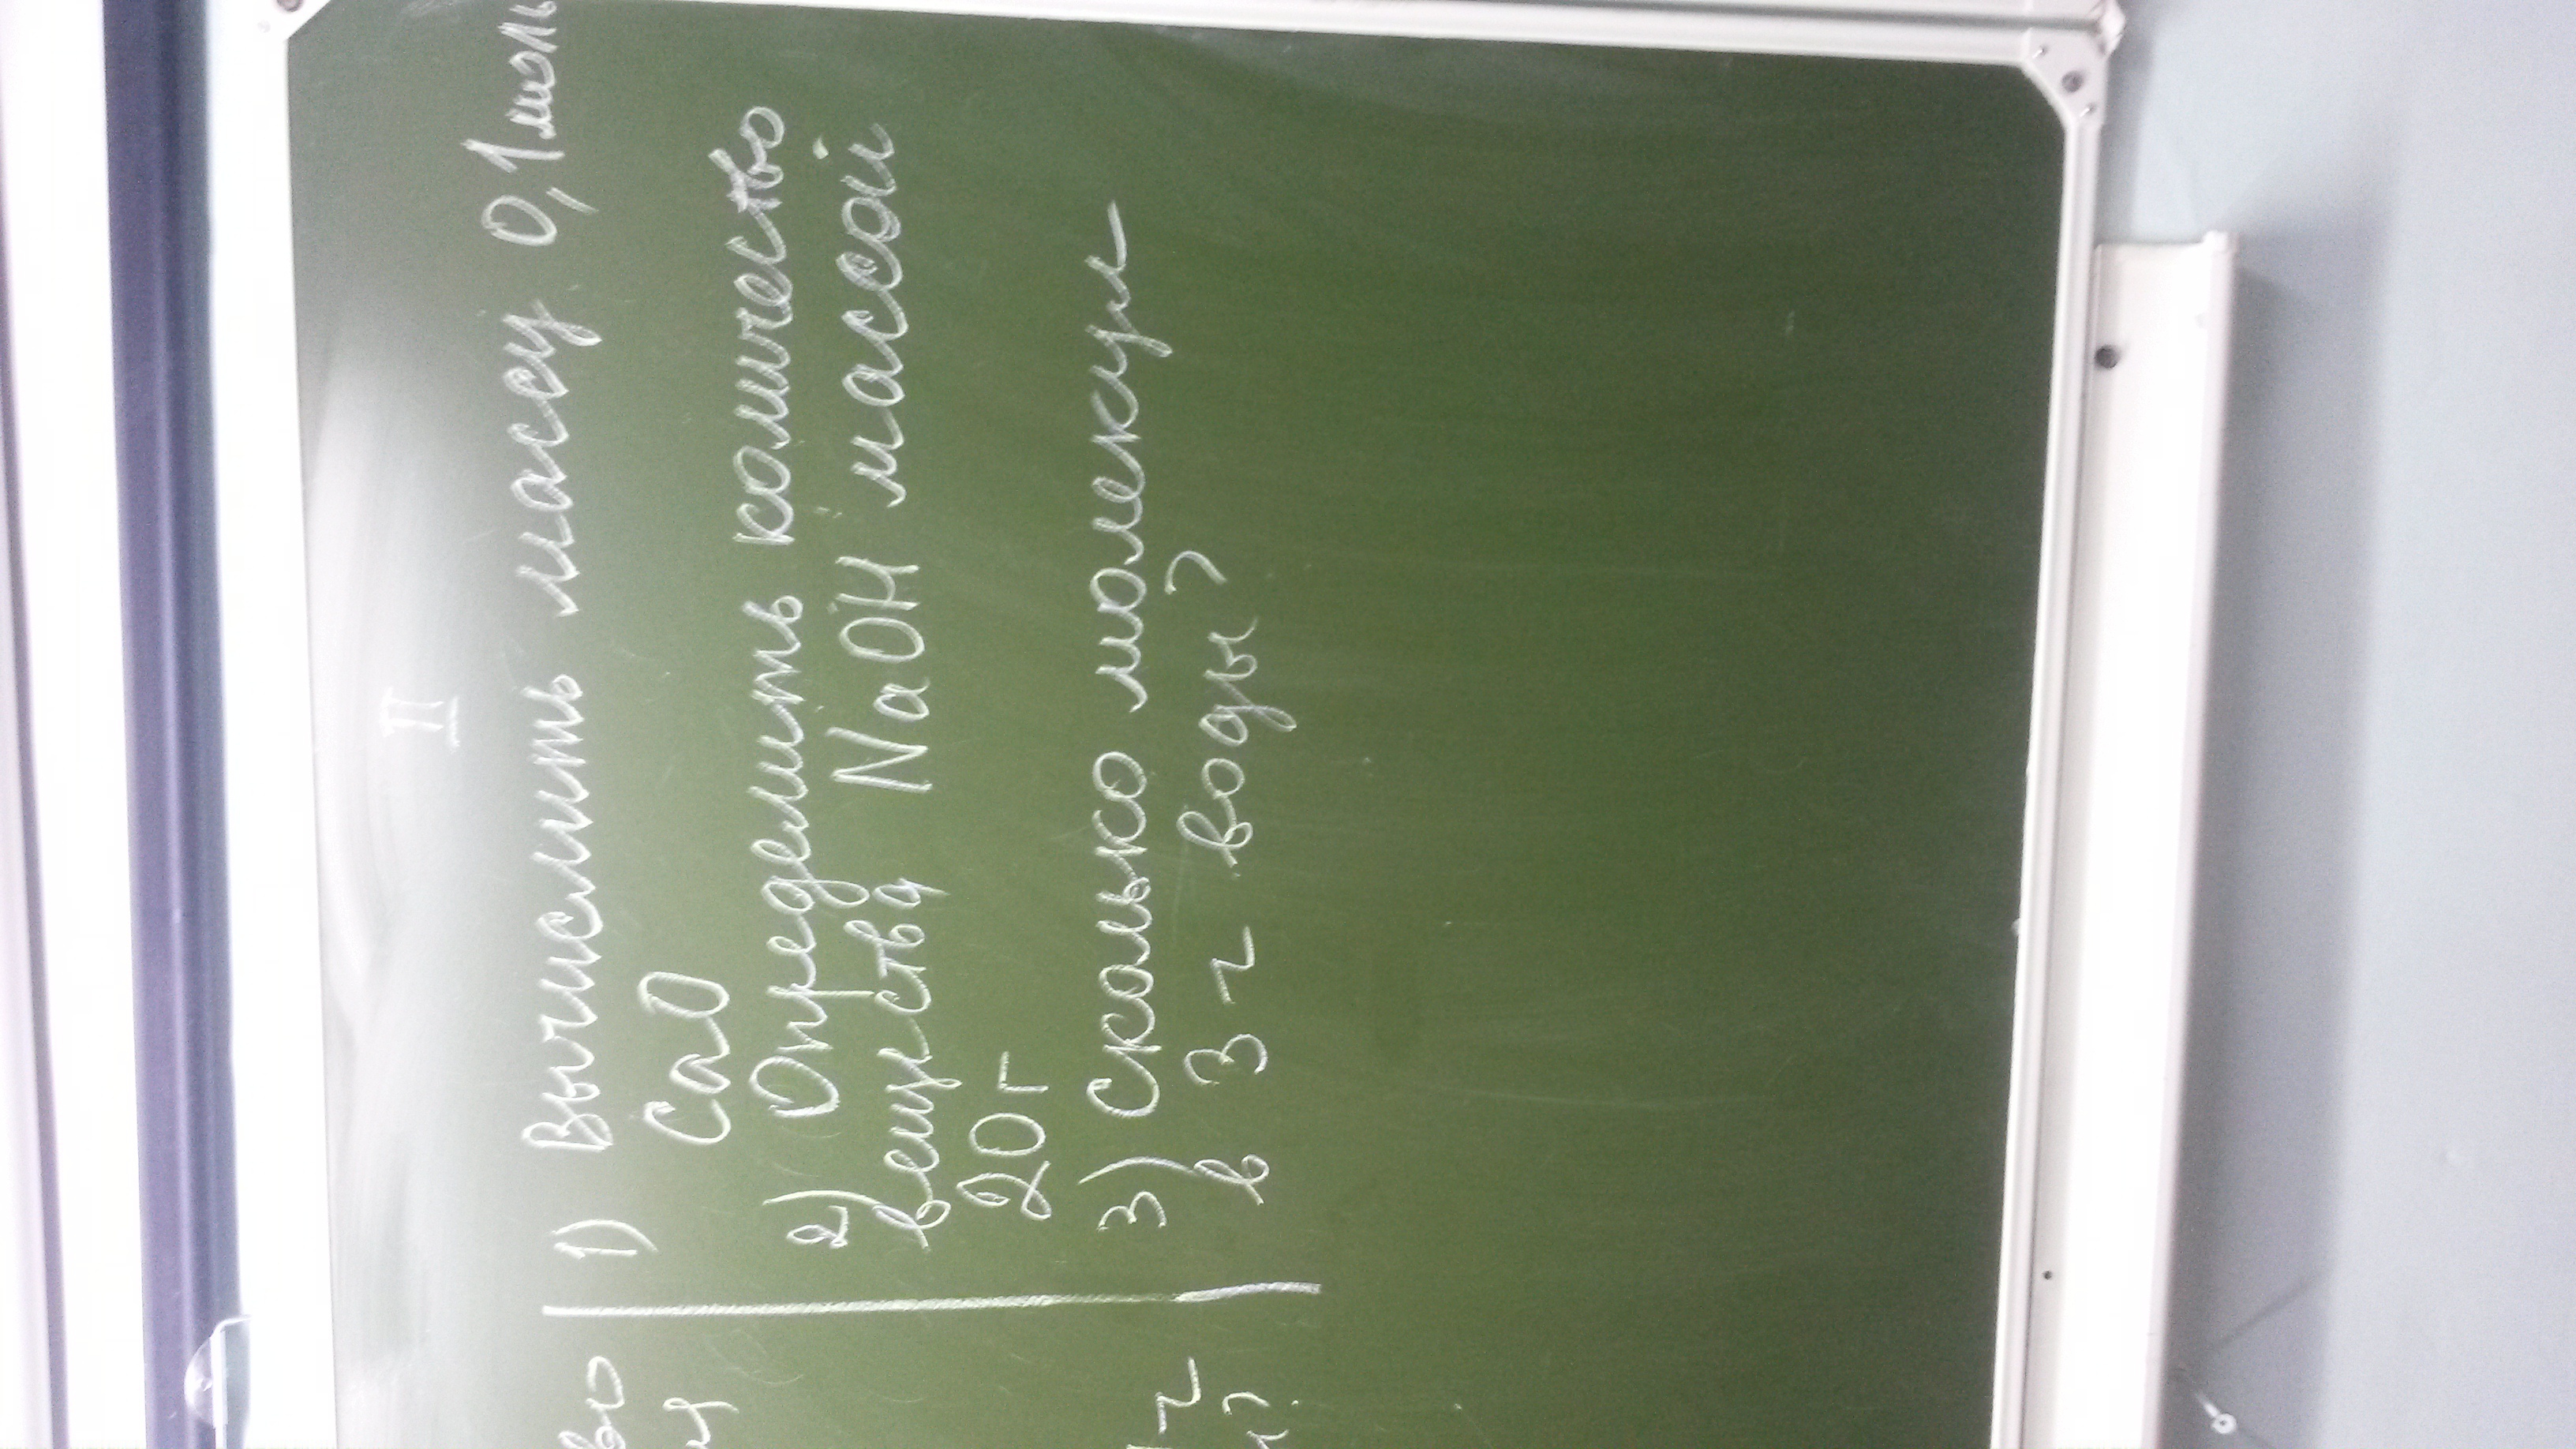 II
1) Вычислить массу 0,1 моль
CaO
2) Определить количество
вещества NaOH массой
20 г
3) Сколько молекул
в 3 г воды?